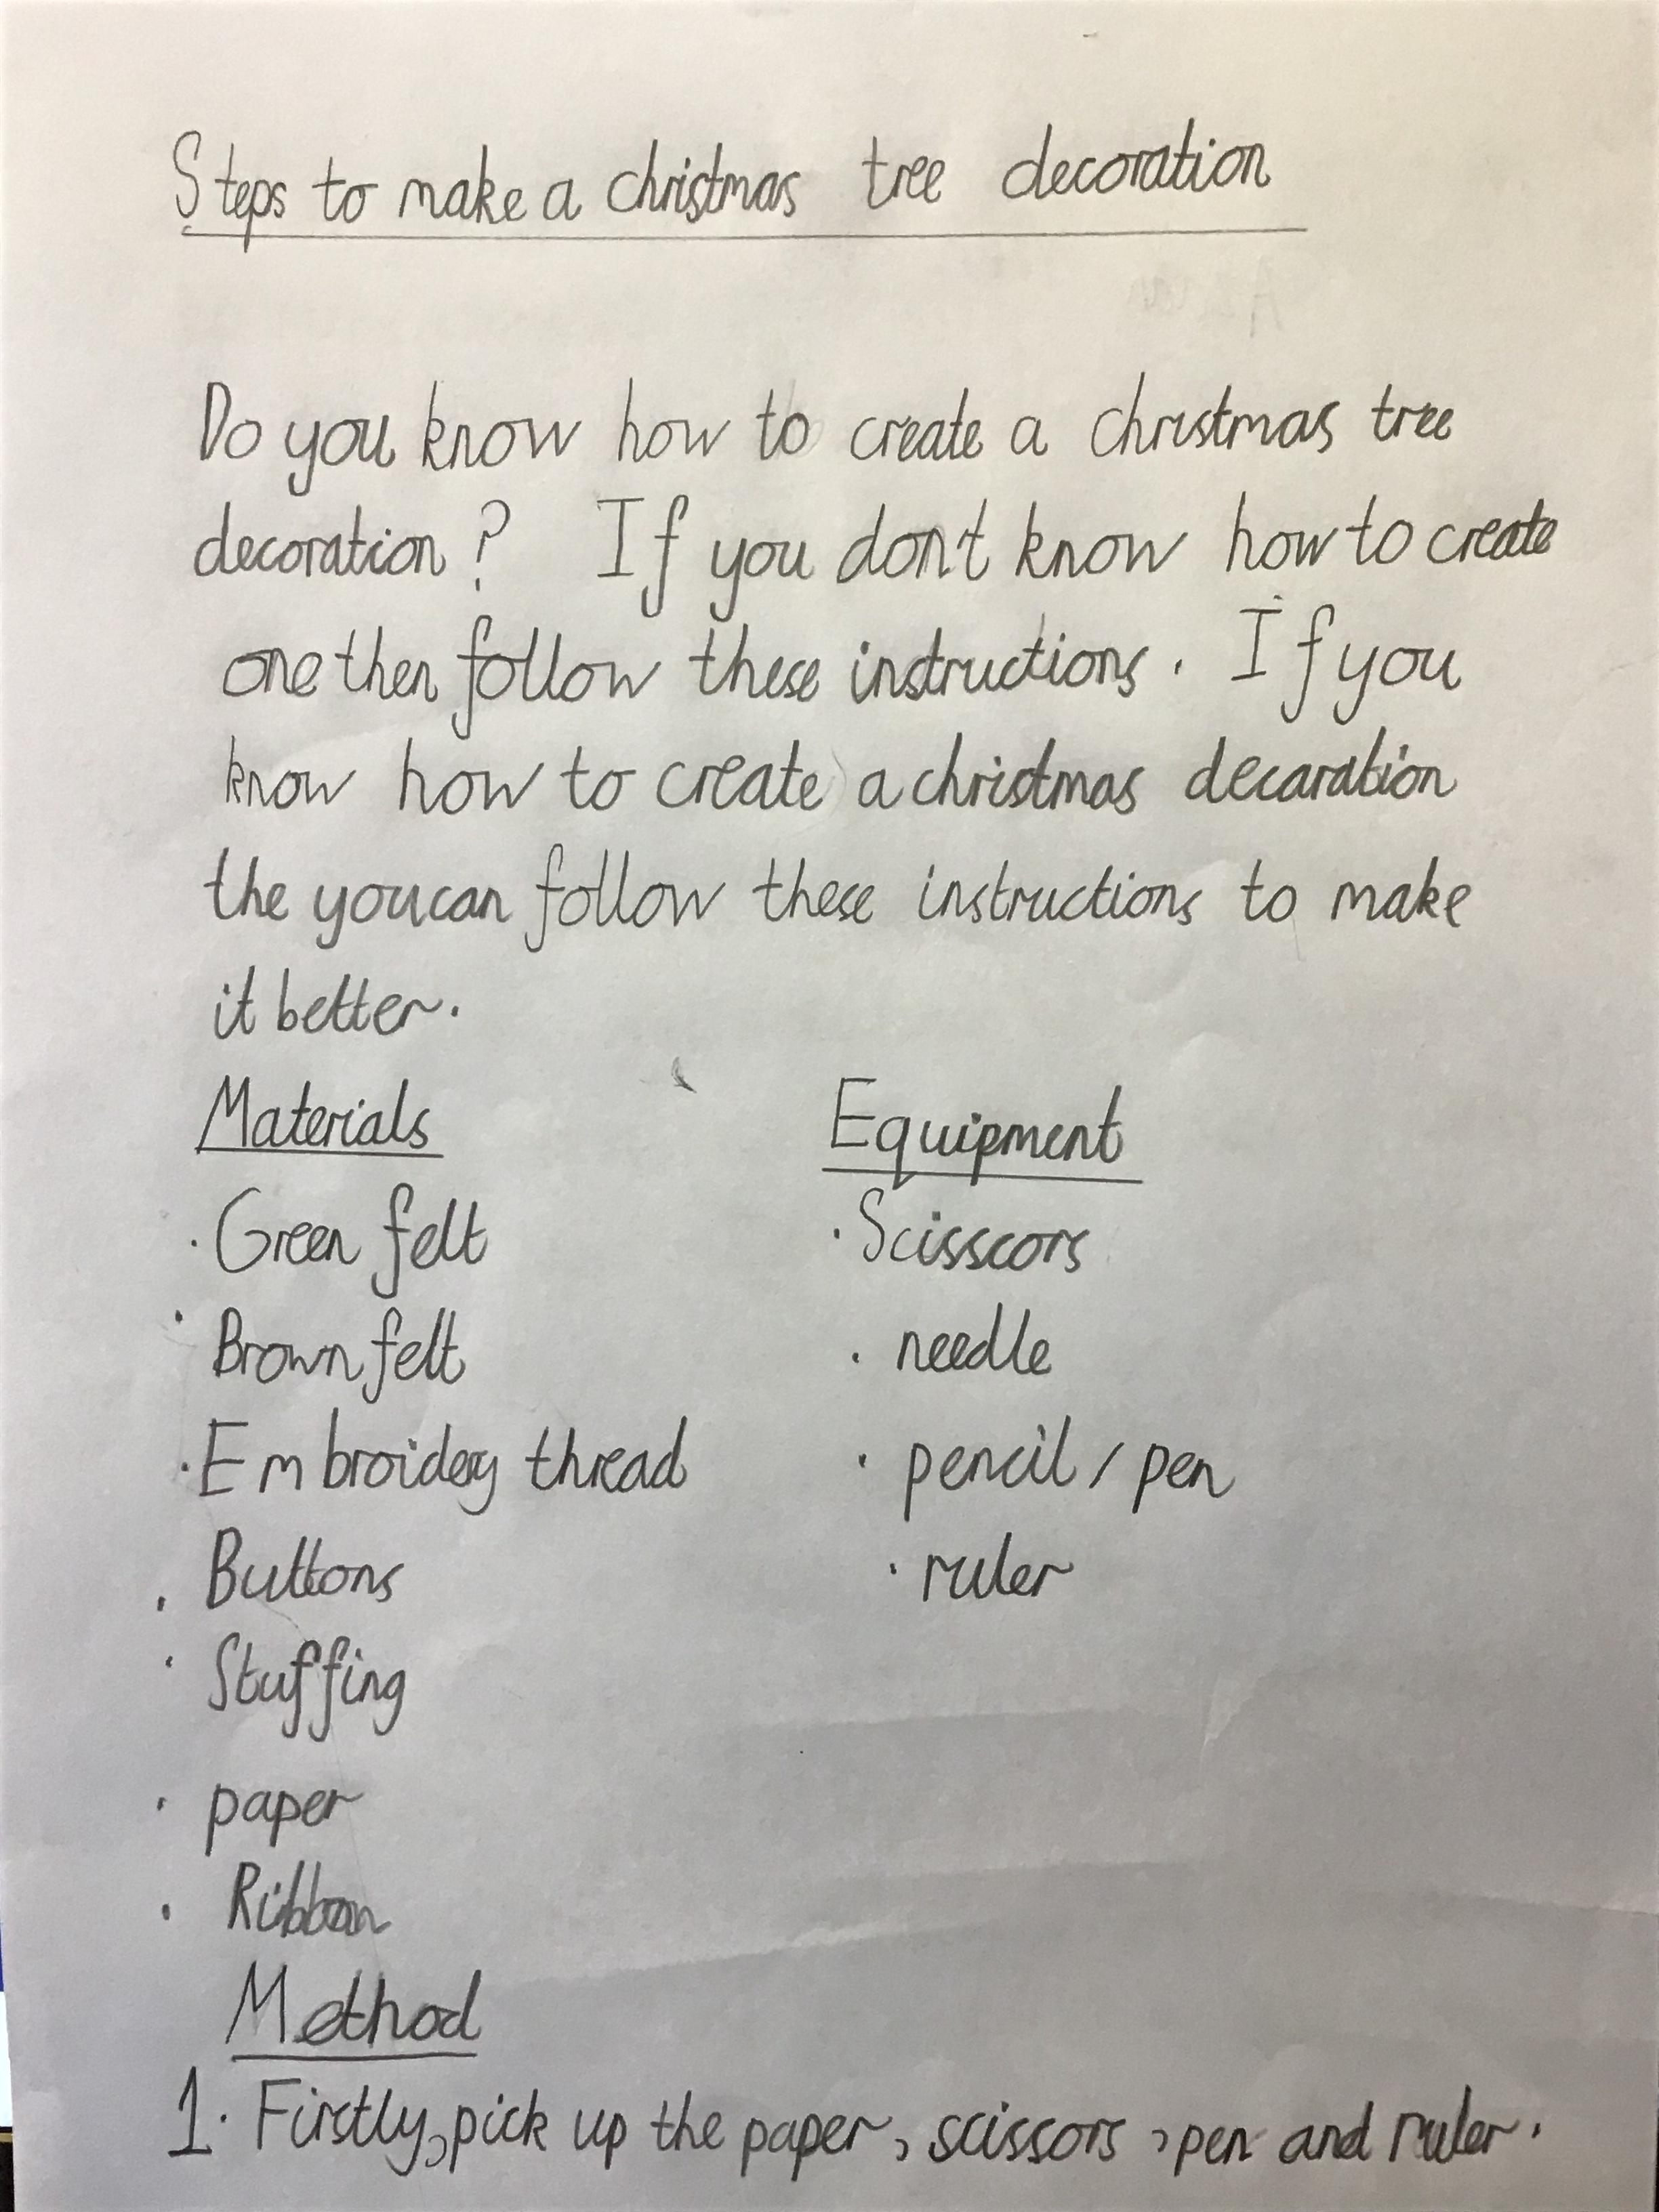 Steps to make a christmas tree decoration
Do you know how to create a christmas tree
decoration? If you don't know how to create
one then follow these instructions. If you
know how to create a christmas decaration
the you can follow these instructions to make
it better.
Materials
Equipment
· Green felt
· Scisscors
· Brown felt
· needle
· Embroidery thread
· pencil / pen
· Buttons
· ruler
· Stuffing
· paper
· Ribbon
Method
1. Firstly, pick up the paper, scissors, pen and ruler.